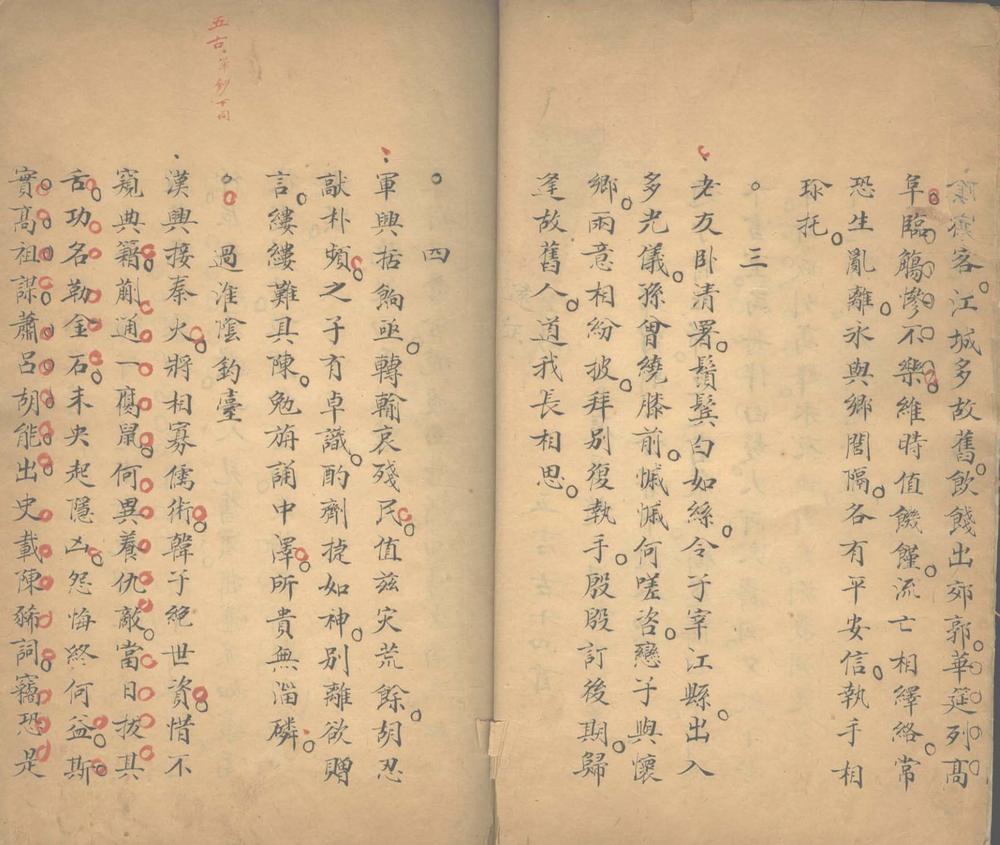 客江城多故舊飲餞出郊郭華筵列高
阜臨觴慘不樂維時值饑饉流亡相繹絡常
恐生亂離永與鄉閭隔各有平安信執手相
珎托
三
老友卧清署鬚鬓白如絲令子宰江縣出入
多光儀孫曾繞膝前慽慽何嗟咨戀子與懷
鄉兩意相紛披拜別復執手殷殷訂後期歸
逢故舊人道我長相思
四
軍興括餉亟轉輸哀殘民值兹灾荒餘胡忍
献朴頻之子有卓識酌劑捷如神別離欲贈
言縷縷難具陳勉旃誦中澤所貴無淄磷
過淮陰釣臺
漢興接秦火將相寡儒術韓子絕世資惜不
窺典籍蒯通一腐鼠何異養仇敵當日拔其
舌功名勒金石未央起隱凶怨悔終何益斯
實高祖謀蕭呂胡能出史載陳豨詞竊恐是
五古單鈔下同